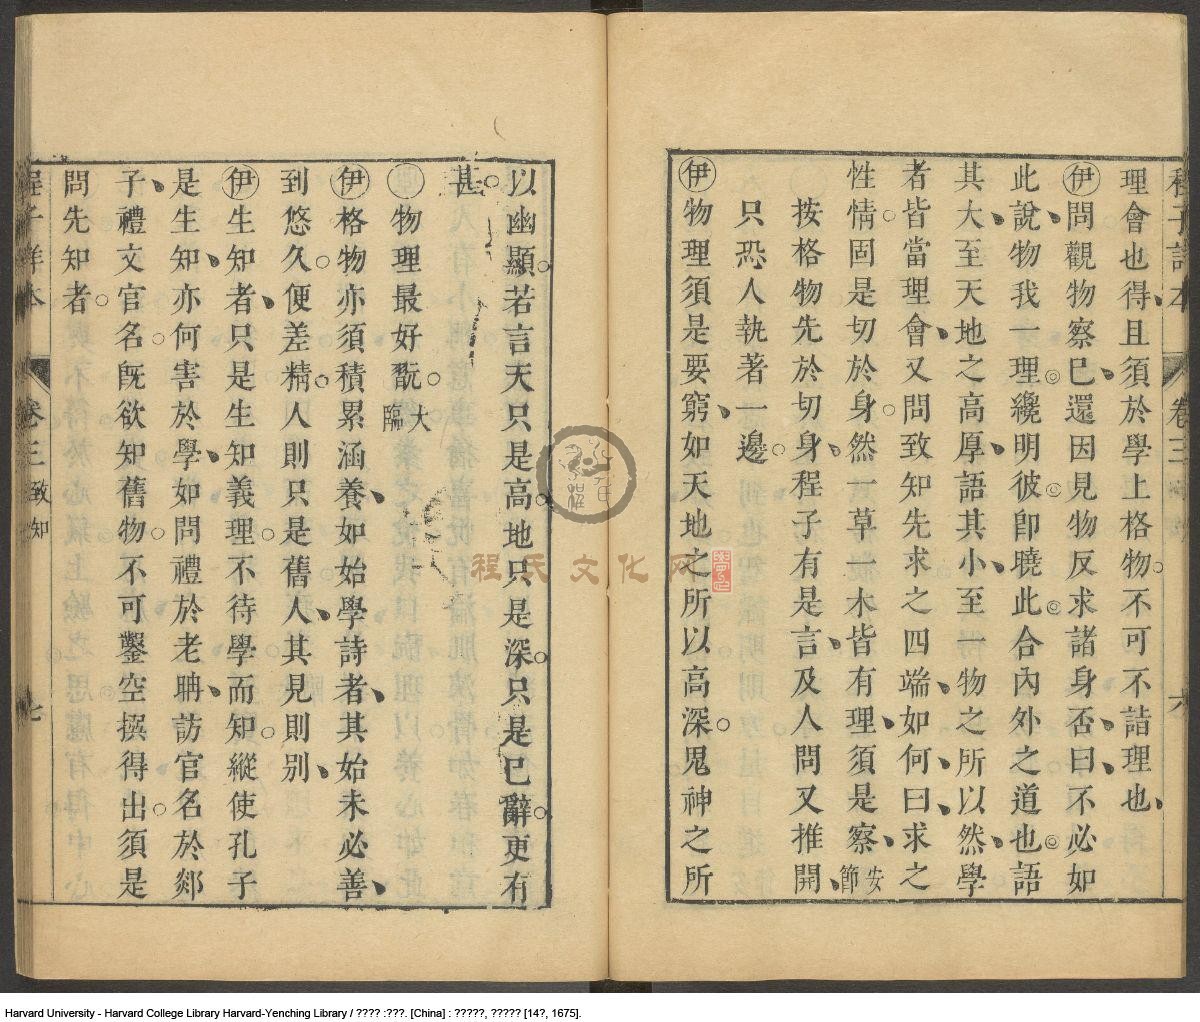 理會也得且須於學上格物不可不詣理也
伊問觀物察已還因見物反求諸身否曰不必如
此說物我一理纔明彼卽曉此合內外之道也語
其大至天地之高厚語其小至一物之所以然學
者皆當理會又問致知先求之四端如何曰求之
性情固是切於身然一草一木皆有理須是察安節
按格物先於切身程子有是言及人問又推開
只恐人執著一邊
伊物理須是要窮如天地之所以高深鬼神之所
以幽顯若言天只是高地只是深只是已辭更有
甚
物理最好翫大臨
伊格物亦須積累涵養如始學詩者其始未必善
到悠久便差精人則只是舊人其見則別
伊生知者只是生知義理不待學而知縱使孔子
是生知亦何害於學如問禮於老聃訪官名於郯
子禮文官名旣欲知舊物不可鑿空撰得出須是
問先知者
程子詳本 卷三 六
程子詳本 卷三 致知 七
程氏文化网
Harvard University - Harvard College Library Harvard-Yenching Library / ???? :???. [China] : ?????, ????? [14?, 1675].